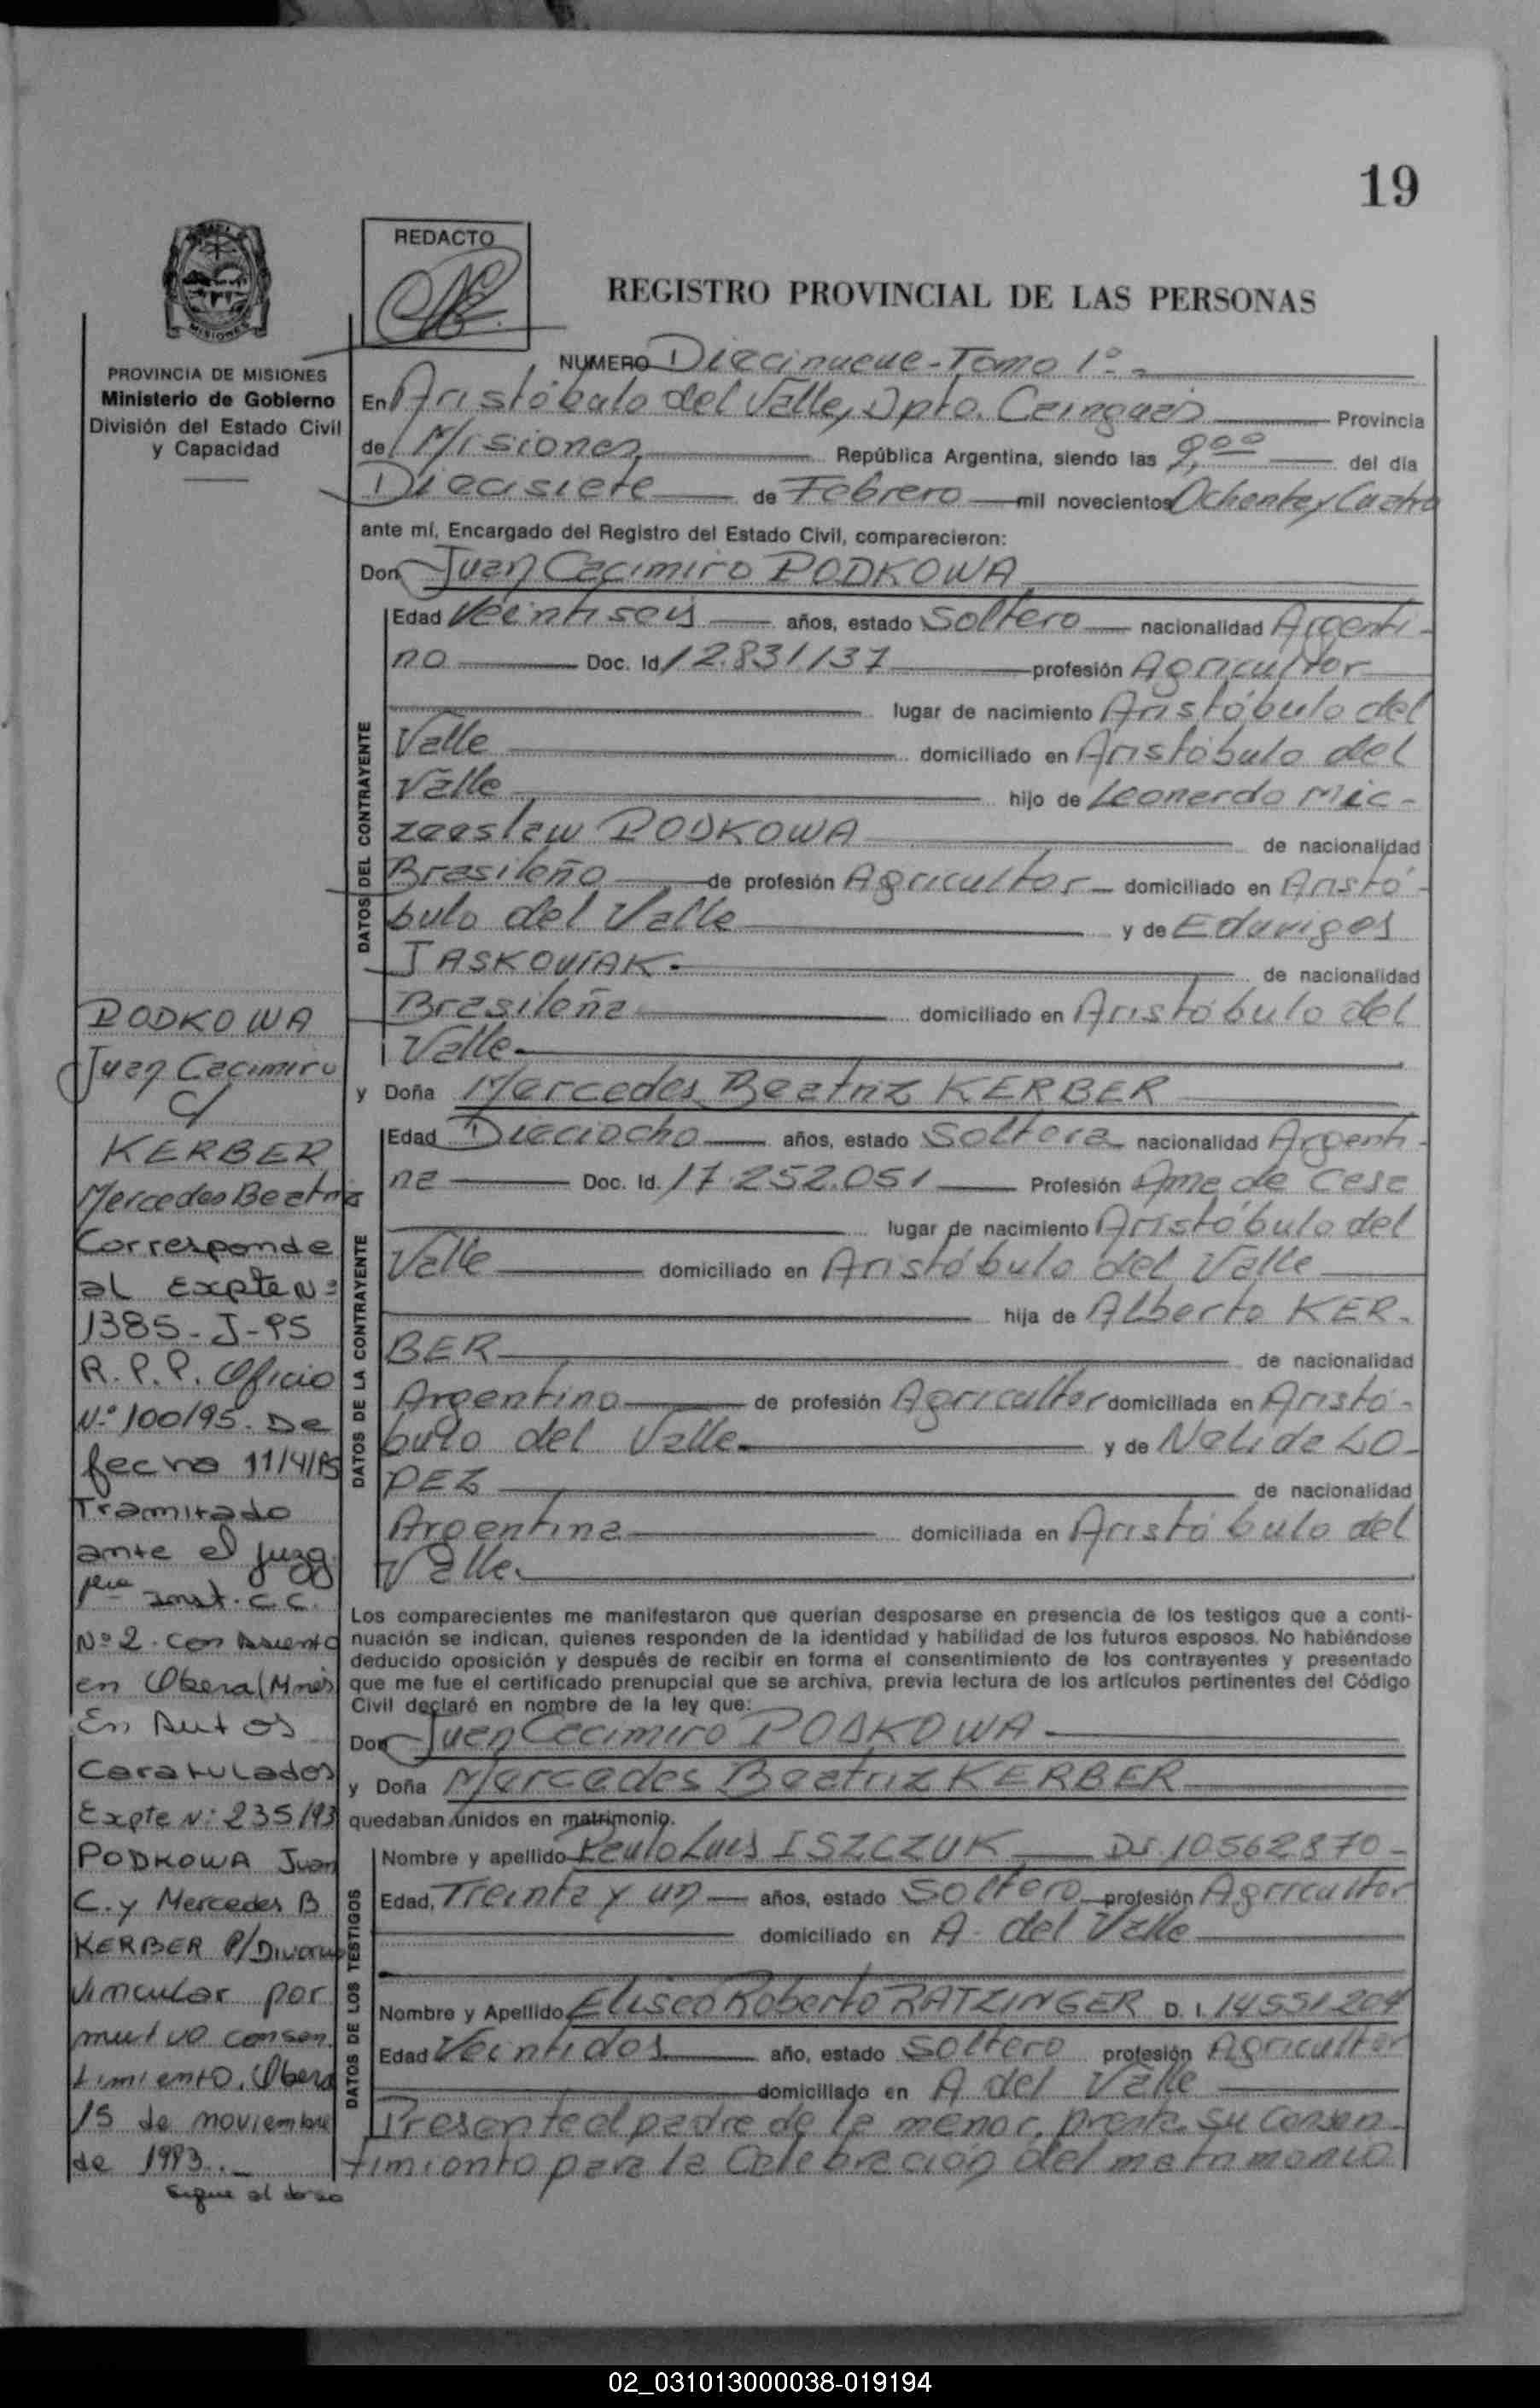 19
REDACTO
REGISTRO PROVINCIAL DE LAS PERSONAS
MISIONES
PROVINCIA DE MISIONES
Ministerio de Gobierno
División del Estado Civil
y Capacidad
NUMERO Diecinueve - Tomo 1º -
En Aristóbulo del Valle, Dpto. Cainguas Provincia
de Misiones República Argentina, siendo las 9,00 del día
Diecisiete de Febrero mil novecientos Ochenta y Cuatro
ante mí, Encargado del Registro del Estado Civil, comparecieron:
Don Juan Cacimiro PODKOWA
DATOS DEL CONTRAYENTE
Edad Veintiseis años, estado Soltero nacionalidad Argenti-
no Doc. Id. 12.831137 profesión Agricultor
lugar de nacimiento Aristóbulo del
Valle domiciliado en Aristóbulo del
Valle hijo de Leonardo Mic-
zaeslaw PODKOWA de nacionalidad
Brasileño de profesión Agricultor domiciliado en Aristó-
bulo del Valle y de Eduviges
JASKOVIAK.- de nacionalidad
Brasileña domiciliado en Aristóbulo del
Valle.-
y Doña Mercedes Beatriz KERBER
DATOS DE LA CONTRAYENTE
Edad Dieciocho años, estado Soltera nacionalidad Argenti-
na Doc. Id. 17.252.051 Profesión Ama de Casa
lugar de nacimiento Aristóbulo del
Valle domiciliado en Aristóbulo del Valle
hija de Alberto KER-
BER de nacionalidad
Argentino de profesión Agricultor domiciliada en Aristó-
bulo del Valle. y de Nelida LO-
PEZ de nacionalidad
Argentina domiciliada en Aristóbulo del
Valle.
Los comparecientes me manifestaron que querían desposarse en presencia de los testigos que a conti-
nuación se indican, quienes responden de la identidad y habilidad de los futuros esposos. No habiéndose
deducido oposición y después de recibir en forma el consentimiento de los contrayentes y presentado
que me fue el certificado prenupcial que se archiva, previa lectura de los artículos pertinentes del Código
Civil declaré en nombre de la ley que:
Don Juan Cacimiro PODKOWA
y Doña Mercedes Beatriz KERBER
quedaban unidos en matrimonio.
DATOS DE LOS TESTIGOS
Nombre y apellido Paulo Luis ISZCZUK DI 10562870-
Edad, Treinta y un años, estado Soltero profesión Agricultor
domiciliado en A. del Valle
Nombre y Apellido Eliseo Roberto RATZINGER D. I. 14551204
Edad Veintidos año, estado soltero profesión Agricultor
domiciliado en A del Valle
Presente el padre de la menor, presta su consen-
timiento para la Celebración del matrimonio
PODKOWA
Juan Cacimiro
c/
KERBER
Mercedes Beatriz
Corresponde
al Expte Nº
1385-J-95
R.P.P. Oficio
Nº 100/95. De
fecha 11/4/95
Tramitado
ante el Juzg.
Inst. C.C.
Nº 2. con Asiento
en Obera (Mnes)
En Autos
Caratulados
Expte Nº 235/93
PODKOWA Juan
C. y Mercedes B
KERBER P/Divorcio
Vincular por
mutuo consen
timiento. Obera
15 de noviembre
de 1993.-
Sigue al dorso
02_031013000038-019194